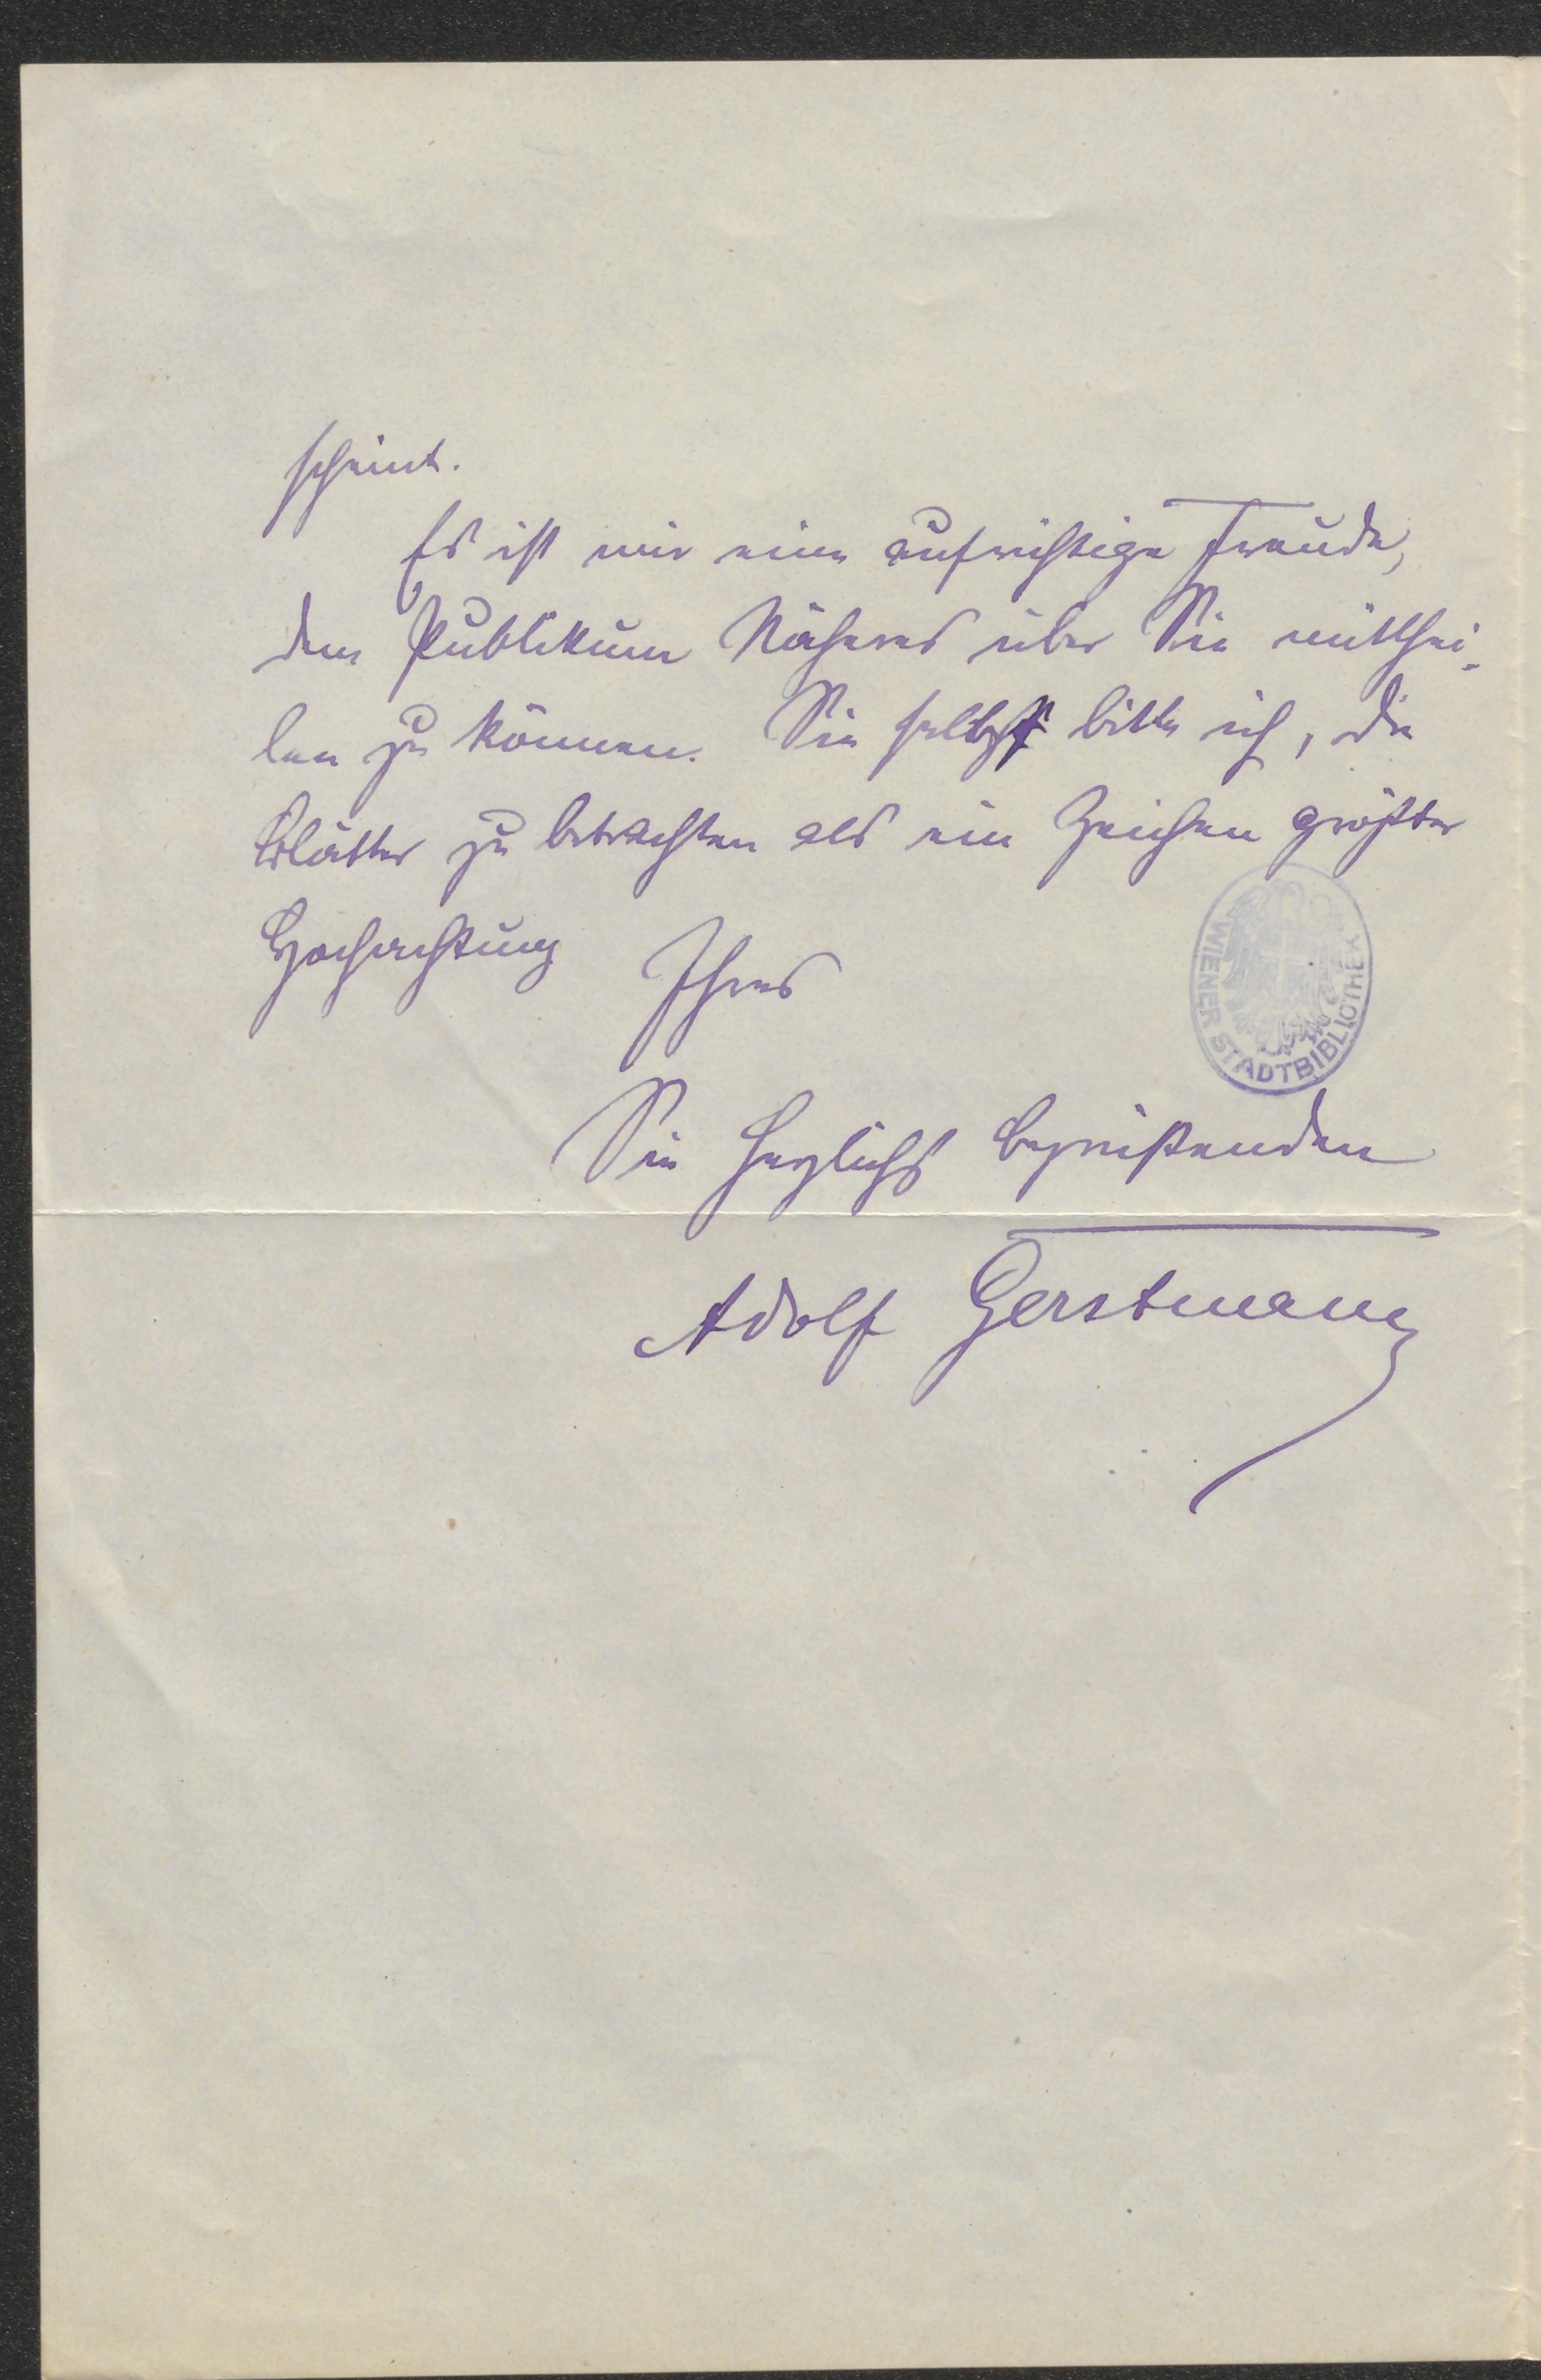 scheint.
Es ist mir eine aufrichtige Freude,
dem Publikum Näheres über Sie mitthei-
len zu können. Sie selbst bitte ich, die
Blätter zu betrachten als ein Zeichen größter
Hochachtung Ihres
WIENER STADTBIBLIOTHEK
Sie herzlichst begrüßenden
Adolf Gerstmann